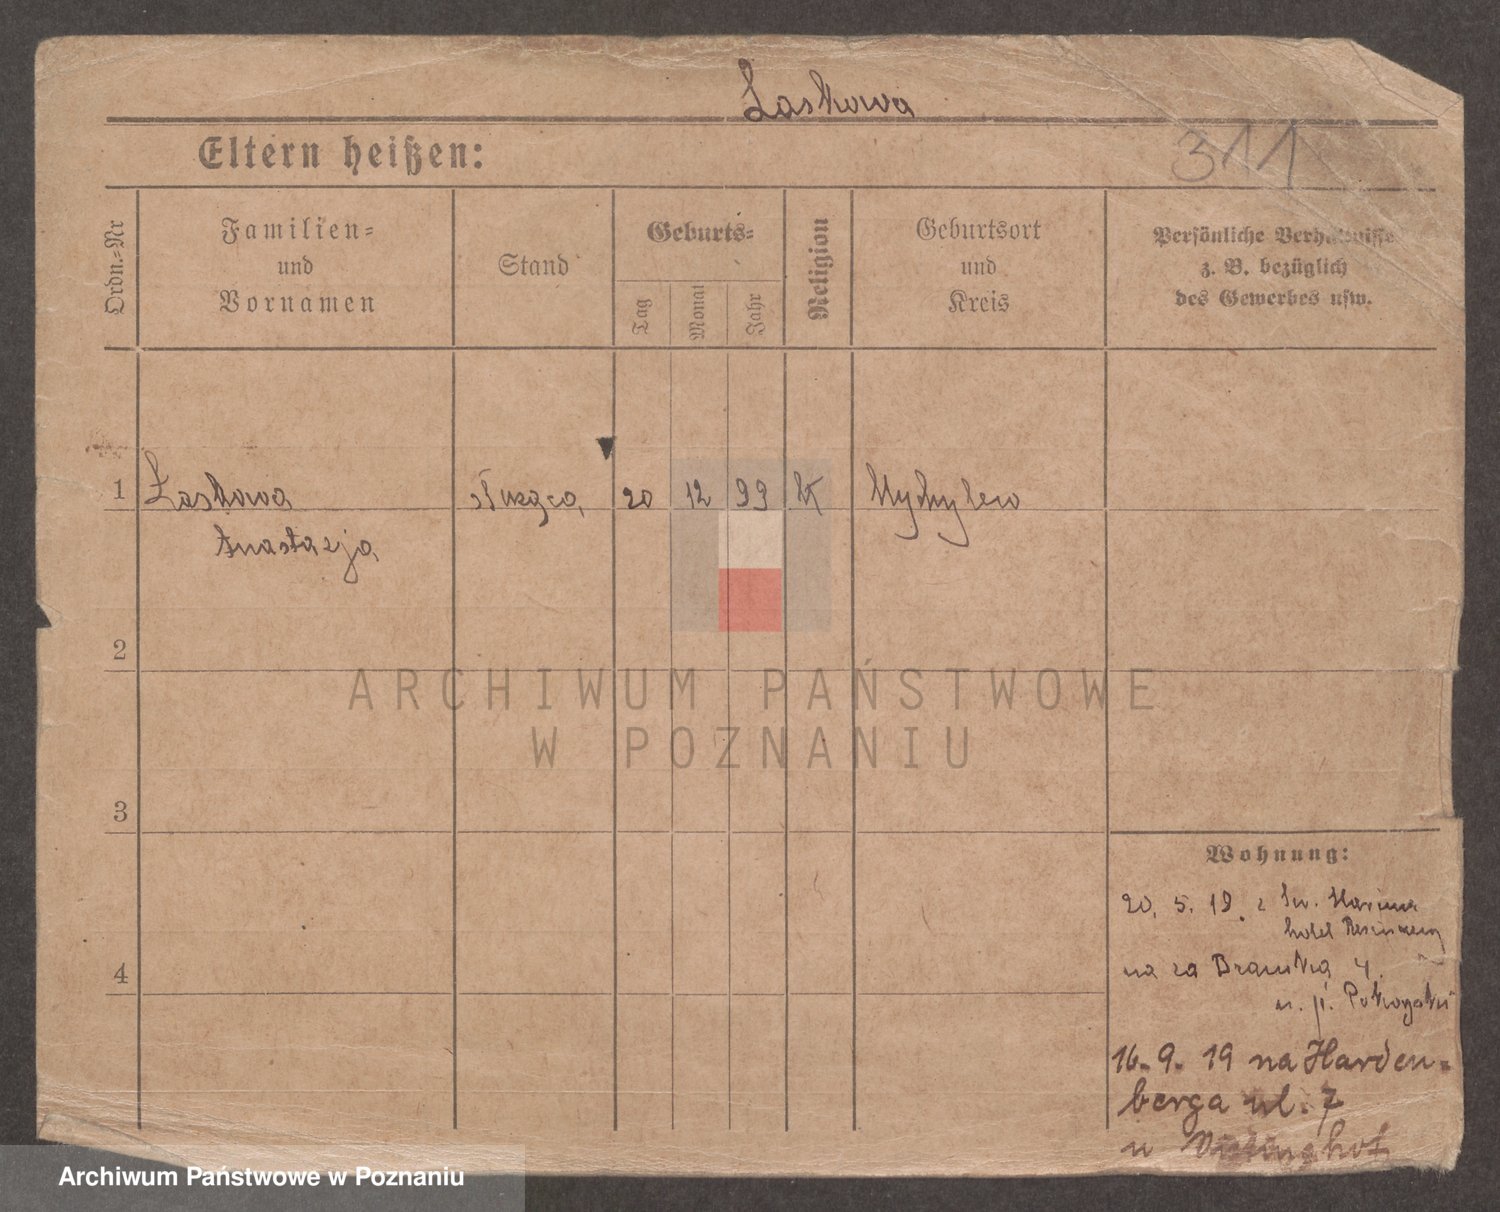 Laskowa
311
Eltern heißen:
Ordn.-Nr
Familien-
und
Vornamen
Stand
Geburts-
Tag
Monat
Jahr
Religion
Geburtsort
und
Kreis
Persönliche Verhältnisse
z. B. bezüglich
des Gewerbes usw.
1 Laskowa służąca 20 12 99 K
Anastazja
2
3
4
ARCHIWUM PAŃSTWOWE
W POZNANIU
Wohnung:
20. 5. 19. z Św. Marcina
hotel
na za Bramką 4.
u. p.
16. 9. 19 na Harden-
berga ul. 7
u
Archiwum Państwowe w Poznaniu